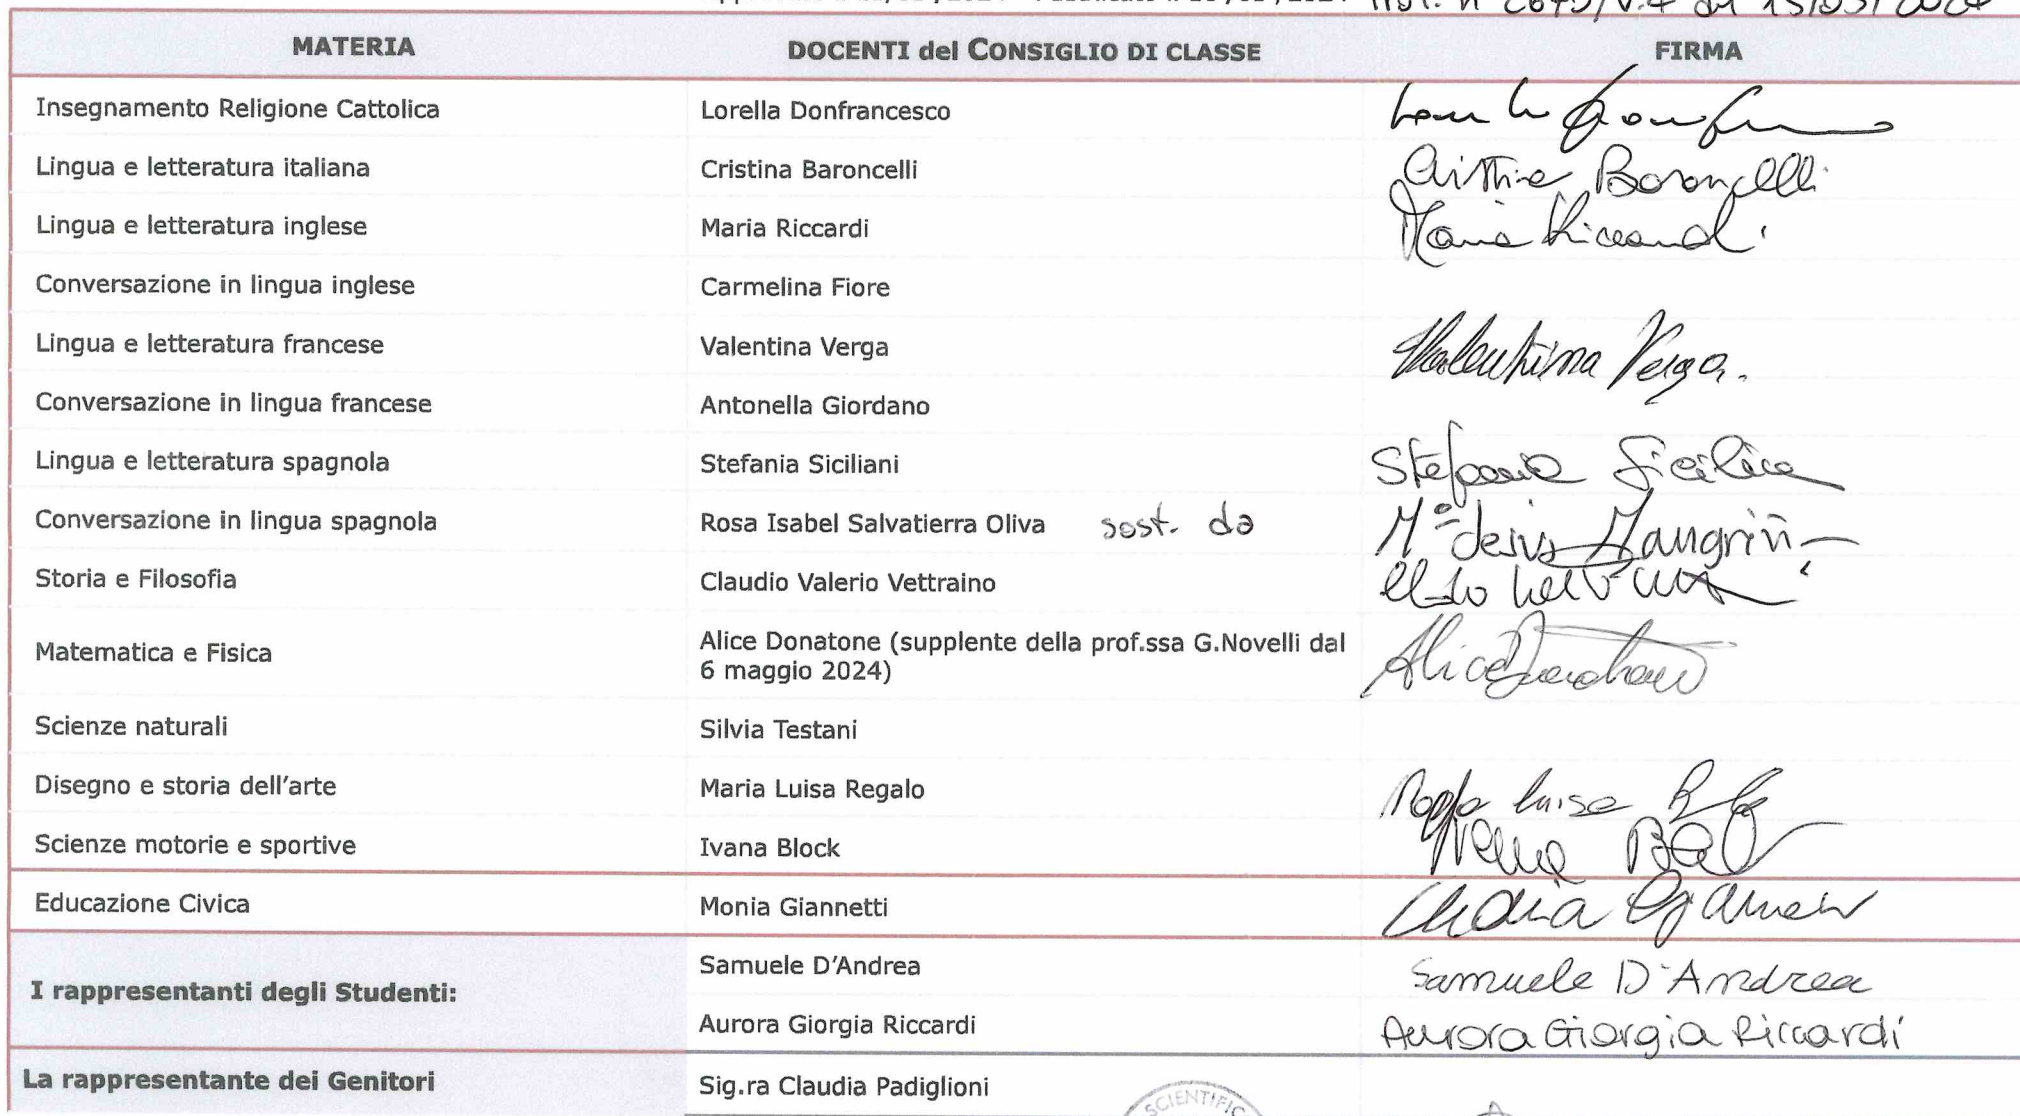 Prot. n° /V.4 del 15/05/2024
MATERIA DOCENTI del CONSIGLIO DI CLASSE FIRMA
Insegnamento Religione Cattolica Lorella Donfrancesco
Lingua e letteratura italiana Cristina Baroncelli Cristina Baroncelli
Lingua e letteratura inglese Maria Riccardi Maria Riccardi
Conversazione in lingua inglese Carmelina Fiore
Lingua e letteratura francese Valentina Verga Valentina Verga.
Conversazione in lingua francese Antonella Giordano
Lingua e letteratura spagnola Stefania Siciliani Stefania
Conversazione in lingua spagnola Rosa Isabel Salvatierra Oliva sost. da Mª
Storia e Filosofia Claudio Valerio Vettraino
Matematica e Fisica Alice Donatone (supplente della prof.ssa G.Novelli dal
6 maggio 2024) Alice Donatone
Scienze naturali Silvia Testani
Disegno e storia dell'arte Maria Luisa Regalo Luisa
Scienze motorie e sportive Ivana Block Ivana
Educazione Civica Monia Giannetti Monia
I rappresentanti degli Studenti: Samuele D'Andrea Samuele D'Andrea
Aurora Giorgia Riccardi Aurora Giorgia Riccardi
La rappresentante dei Genitori Sig.ra Claudia Padiglioni